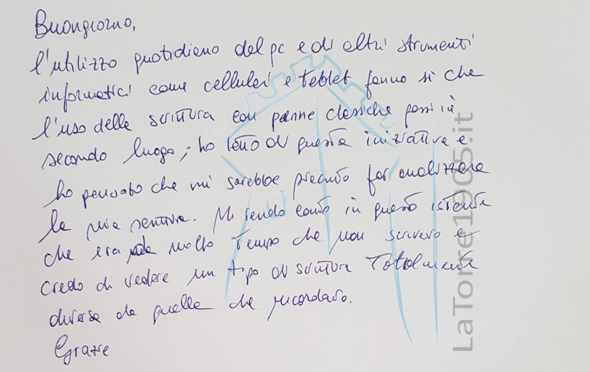 Buongiorno,
l'utilizzo quotidiano del pc e di altri strumenti
informatici come cellulari e tablet fanno si che
l'uso della scrittura con penne classiche passi in
secondo luogo; ho letto di questa iniziativa e
ho pensato che mi sarebbe piaciuto far analizzare
la mia scrittura. Mi rendo conto in questo istante
che era da molto tempo che non scrivevo e
credo di vedere un tipo di scrittura totalmente
diversa da quella che ricordavo.
Grazie
LaTorre1905.it